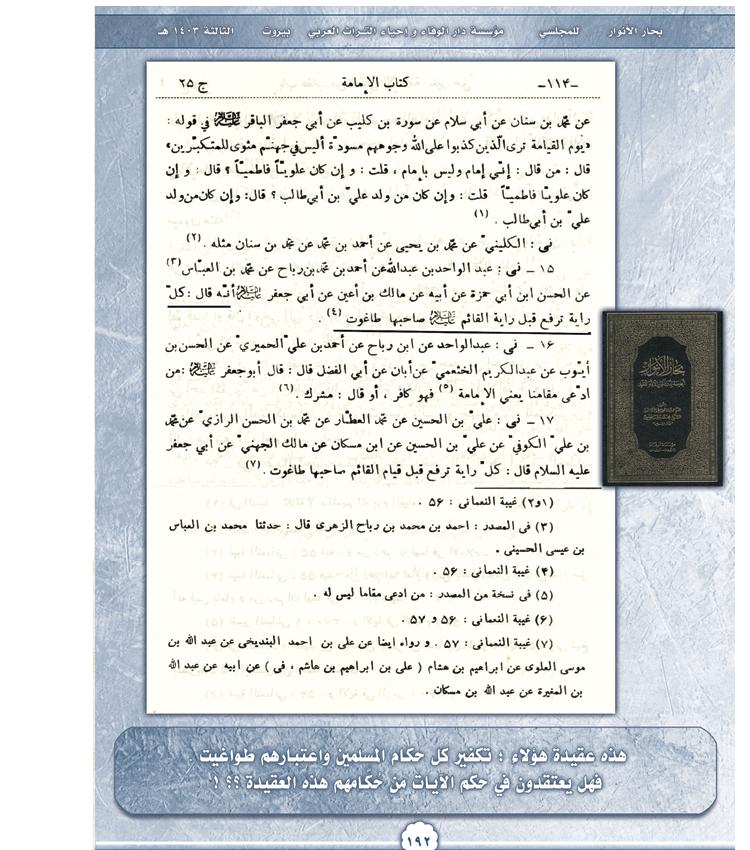 بحار الأنوار للمجلسي مؤسسة دار الوفاء و إحياء التراث العربي بيروت الثالثة ١٤٠٣ هـ
ج ٢٥ كتاب الإمامة -١١۴-
عن محمّد بن سنان عن أبي سلام عن سورة بن كليب عن أبي جعفر الباقر عليه السلام في قوله :
«يوم القيامة ترى الّذين كذبوا على الله وجوههم مسودّة أليس في جهنّم مثوى للمتكبّرين»
قال : من قال : إنّي إمام وليس بإمام ، قلت : و إن كان علويّاً فاطميّاً ؟ قال : و إن
كان علويّاً فاطميّاً قلت : وإن كان من ولد عليّ بن أبي طالب ؟ قال: وإن كان من ولد
عليّ بن أبي طالب . (١)
نى : الكلينيّ عن محمّد بن يحيى عن أحمد بن محمّد عن محمّد بن سنان مثله . (٢)
١٥ - نى : عبد الواحد بن عبد الله عن أحمد بن محمّد بن رباح عن محمّد بن العبّاس (٣)
عن الحسن ابن أبي حمزة عن أبيه عن مالك بن أعين عن أبي جعفر عليه السلام أنّه قال : كلّ
راية ترفع قبل راية القائم عليه السلام صاحبها طاغوت (٤) .
١۶ - نى : عبدالواحد عن ابن رباح عن أحمد بن عليّ الحميريّ عن الحسن بن
أيّوب عن عبدالكريم الخثعميّ عن أبان عن أبي الفضل قال : قال أبو جعفر عليه السلام : من
ادّعى مقامنا يعني الإمامة (۵) فهو كافر ، أو قال : مشرك . (۶)
١٧ - نى : عليّ بن الحسين عن محمّد العطّار عن محمّد بن الحسن الرازيّ عن محمّد
بن عليّ الكوفيّ عن عليّ بن الحسين عن ابن مسكان عن مالك الجهنيّ عن أبي جعفر
عليه السلام قال : كلّ راية ترفع قبل قيام القائم صاحبها طاغوت . (٧)
(١و٢) غيبة النعمانى : ۵۶ .
(٣) فى المصدر : احمد بن محمد بن رباح الزهرى قال : حدثنا محمد بن العباس
بن عيسى الحسينى .
(٤) غيبة النعمانى : ۵۶ .
(۵) فى نسخة من المصدر : من ادعى مقاما ليس له .
(۶) غيبة النعمانى : ۵۶ و ۵٧ .
(٧) غيبة النعمانى : ۵٧ . و رواه ايضا عن على بن احمد البنديخى عن عبد الله بن
موسى العلوى عن ابراهيم بن هشام ( على بن ابراهيم بن هاشم ، فى ) عن ابيه عن عبد الله
بن المغيرة عن عبد الله بن مسكان .
بحار الأنوار
هذه عقيدة هؤلاء : تكفير كل حكام المسلمين واعتبارهم طواغيت .
فهل يعتقدون في حكم الآيات من حكامهم هذه العقيدة ؟؟ !
١٩٢